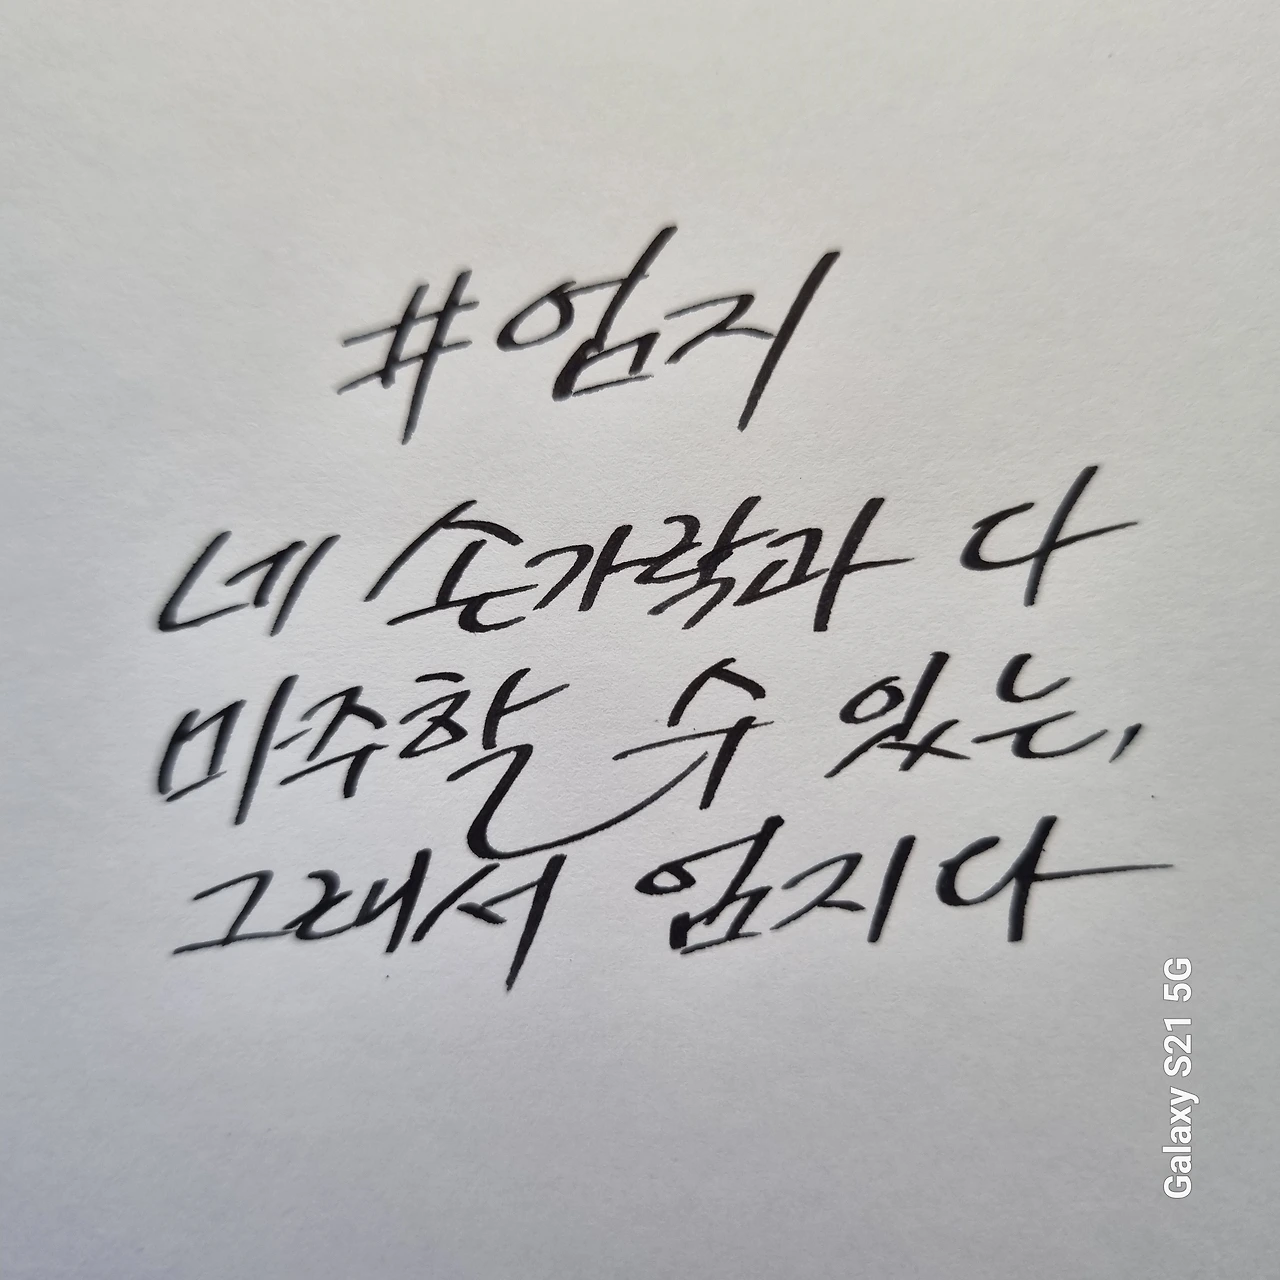 #엄지
네 손가락과 다
마주할 수 있는,
그래서 엄지다
Galaxy S21 5G